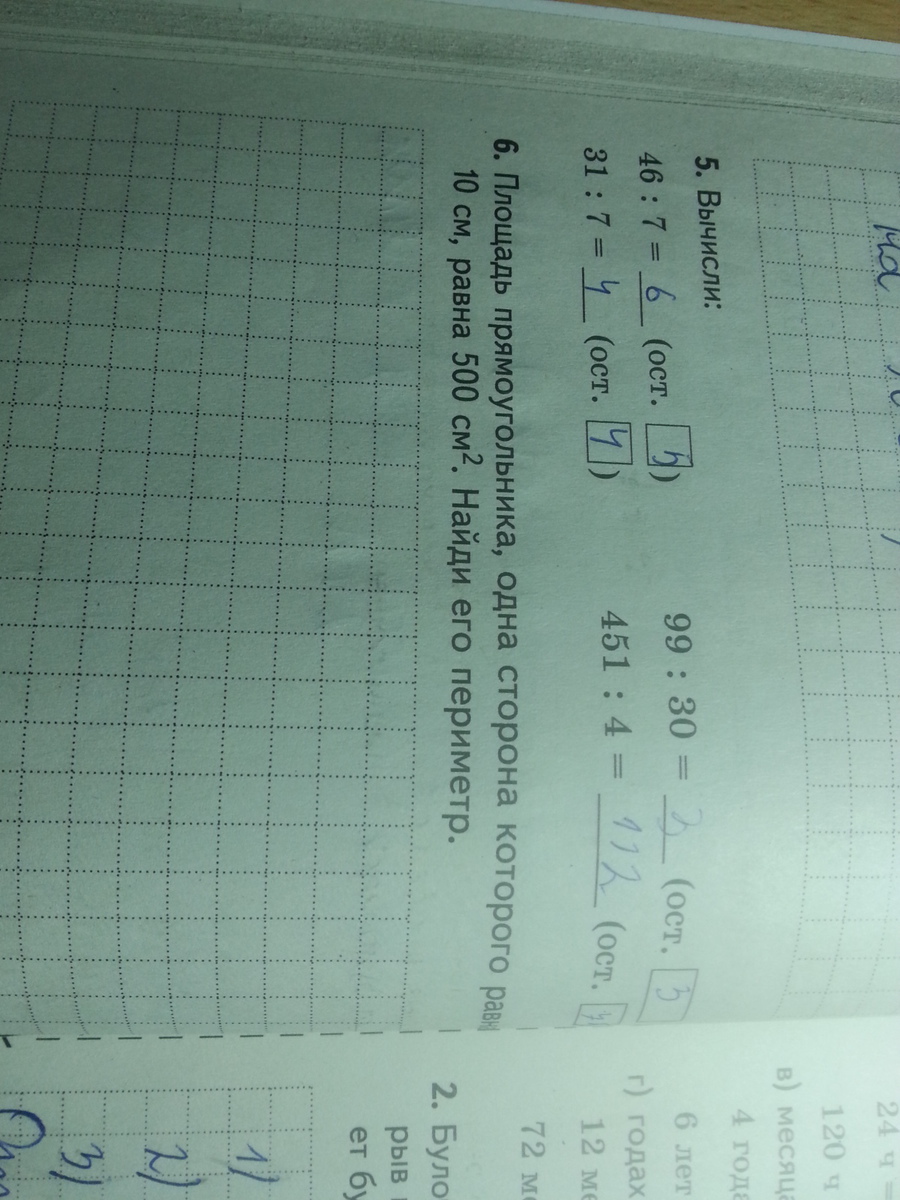 на
5. Вычисли:
46 : 7 = 6 (ост. 5)
99 : 30 = 3 (ост.
31 : 7 = 4 (ост. 4)
451 : 4 = 112 (ост.
6. Площадь прямоугольника, одна сторона которого равн
10 см, равна 500 см². Найди его периметр.
24 ч =
120 ч
в) месяц
4 год
6 лет
г) годах
12 ме
72 ме
2. Було
рыв
ет бу
1)
2)
3)